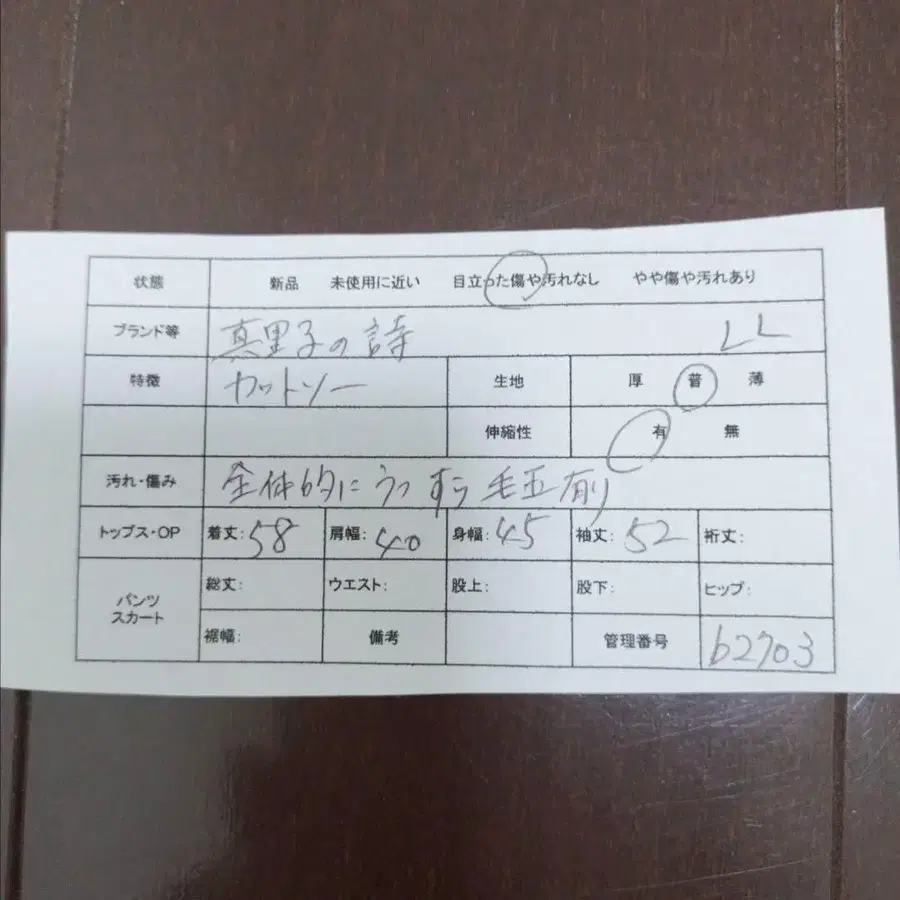 状態 新品 未使用に近い 目立った傷や汚れなし やや傷や汚れあり
ブランド等 真里子の詩 LL
特徴 カットソー 生地 厚 普 薄
伸縮性 有 無
汚れ・傷み 全体的にうっすら毛玉有り
トップス・OP 着丈: 58 肩幅: 40 身幅: 45 袖丈: 52 裄丈:
パンツ スカート 総丈: ウエスト: 股上: 股下: ヒップ:
裾幅: 備考 管理番号 b2703